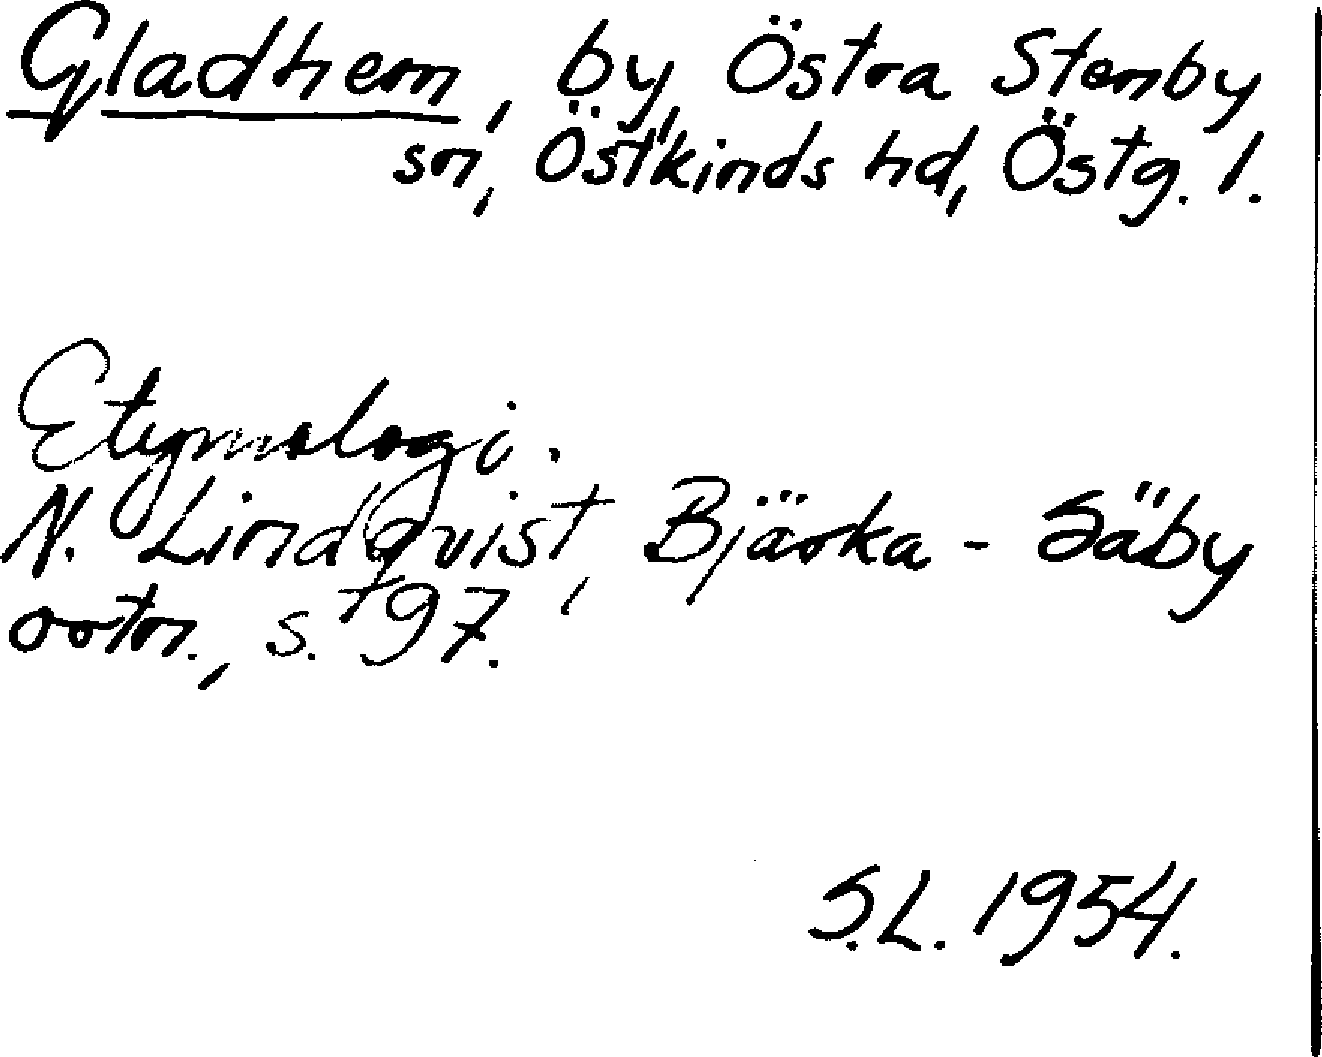 Gladhem, by, Östra Stenby
sn, Östkinds hd, Östg. l.
Etymologi.
N. Lindqvist, Bjärka-Säby
ortn., s. 197.
S.L. 1954.